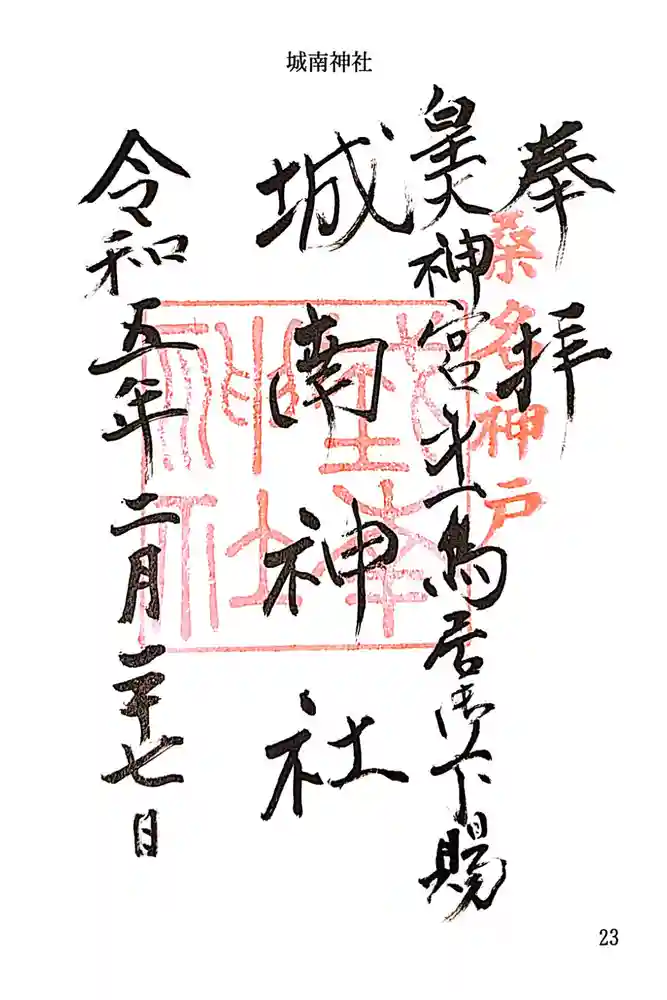 城南神社
奉拝
桑名神戸
皇大神宮才一鳥居御下賜
城南神社
令和五年二月二十七日
23